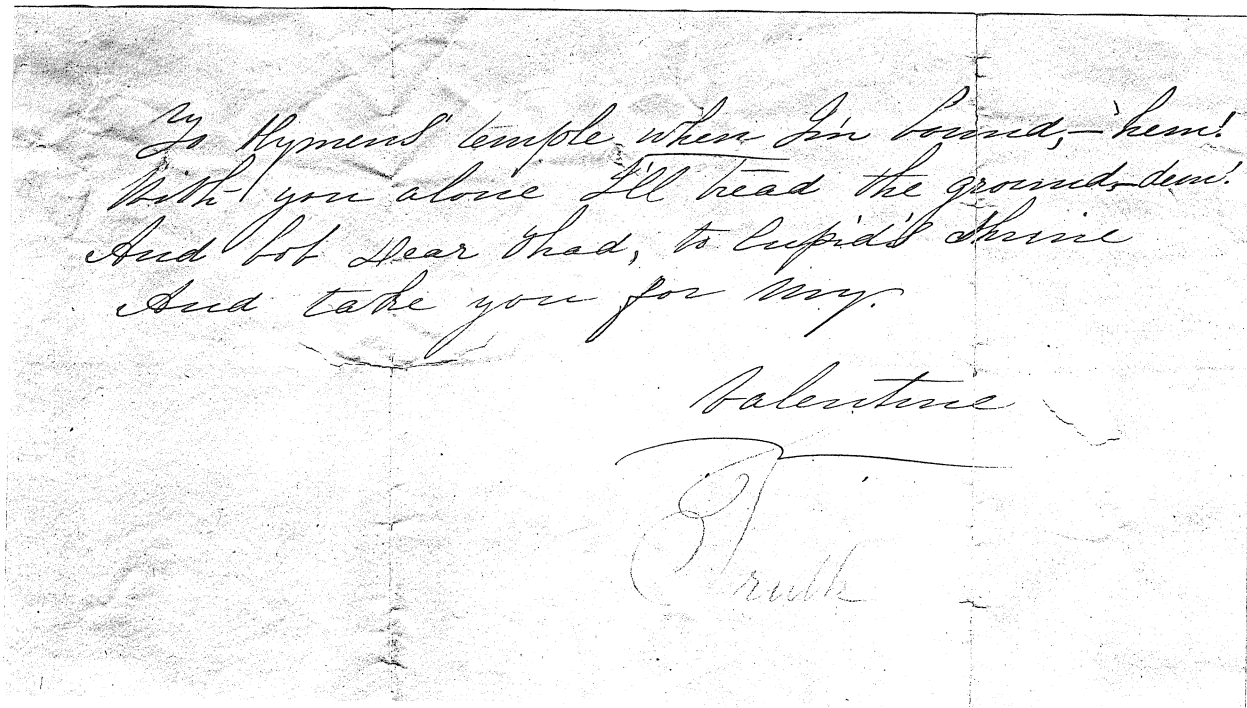 To Hymens' temple when I'm bound, - 'hem!
With you alone I'll tread the ground, - dem!
And bob dear Thad, to Cupid's Shrine
And take you for my.
Valentine
Truth